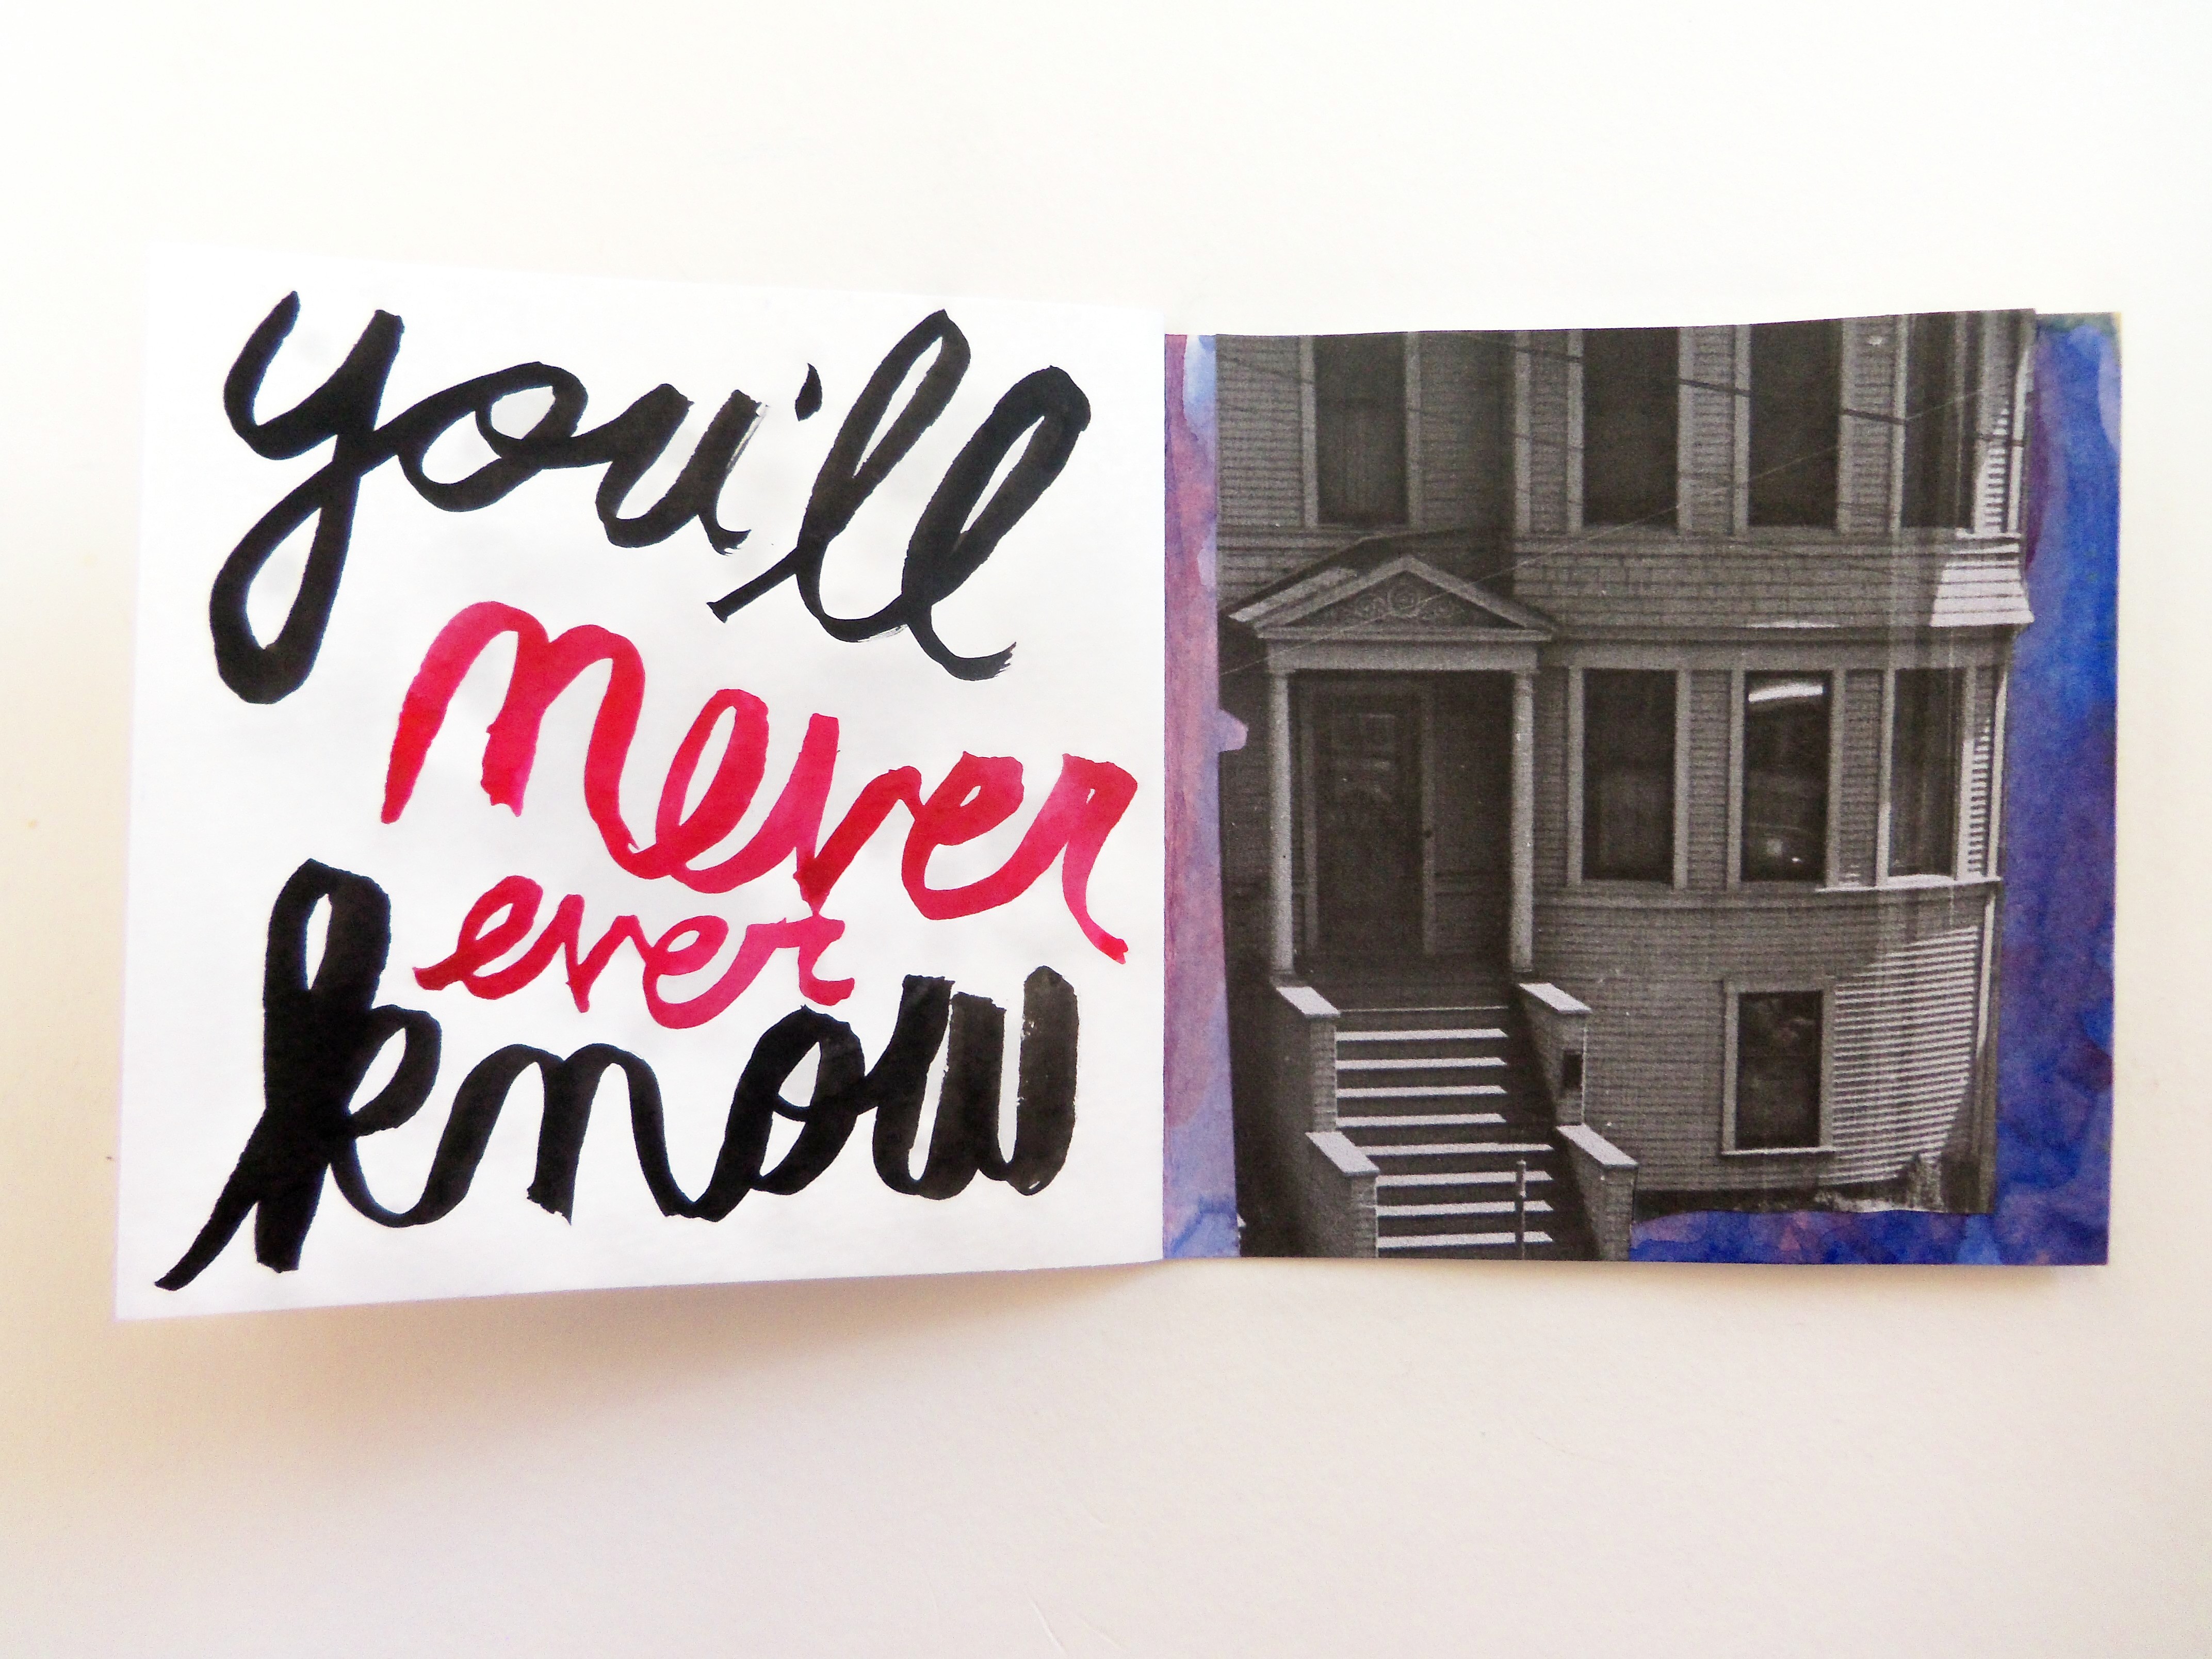 you'll
never
ever
know